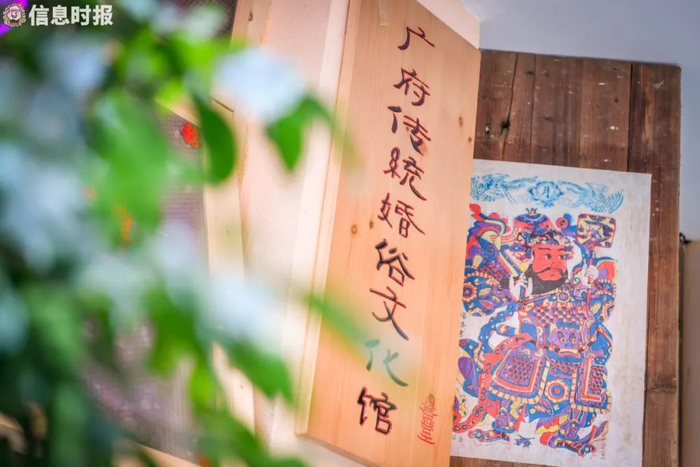 信息时报
广府传统婚俗文化馆